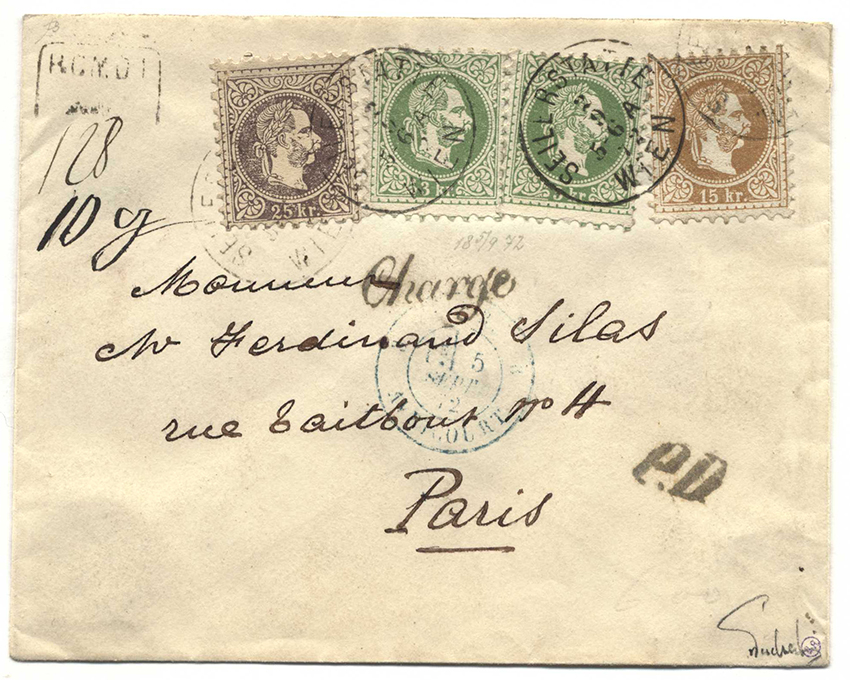 RCMDT
128
10 g
25 kr.
3 kr.
3 kr.
15 kr.
SEILERSTÄTTE
WIEN
18 5/9 72
Chargé
Monsieur
Mr Ferdinand Silas
5
SEPT
72
AVRICOURT
rue Taitbout nº 4
P.D
Paris